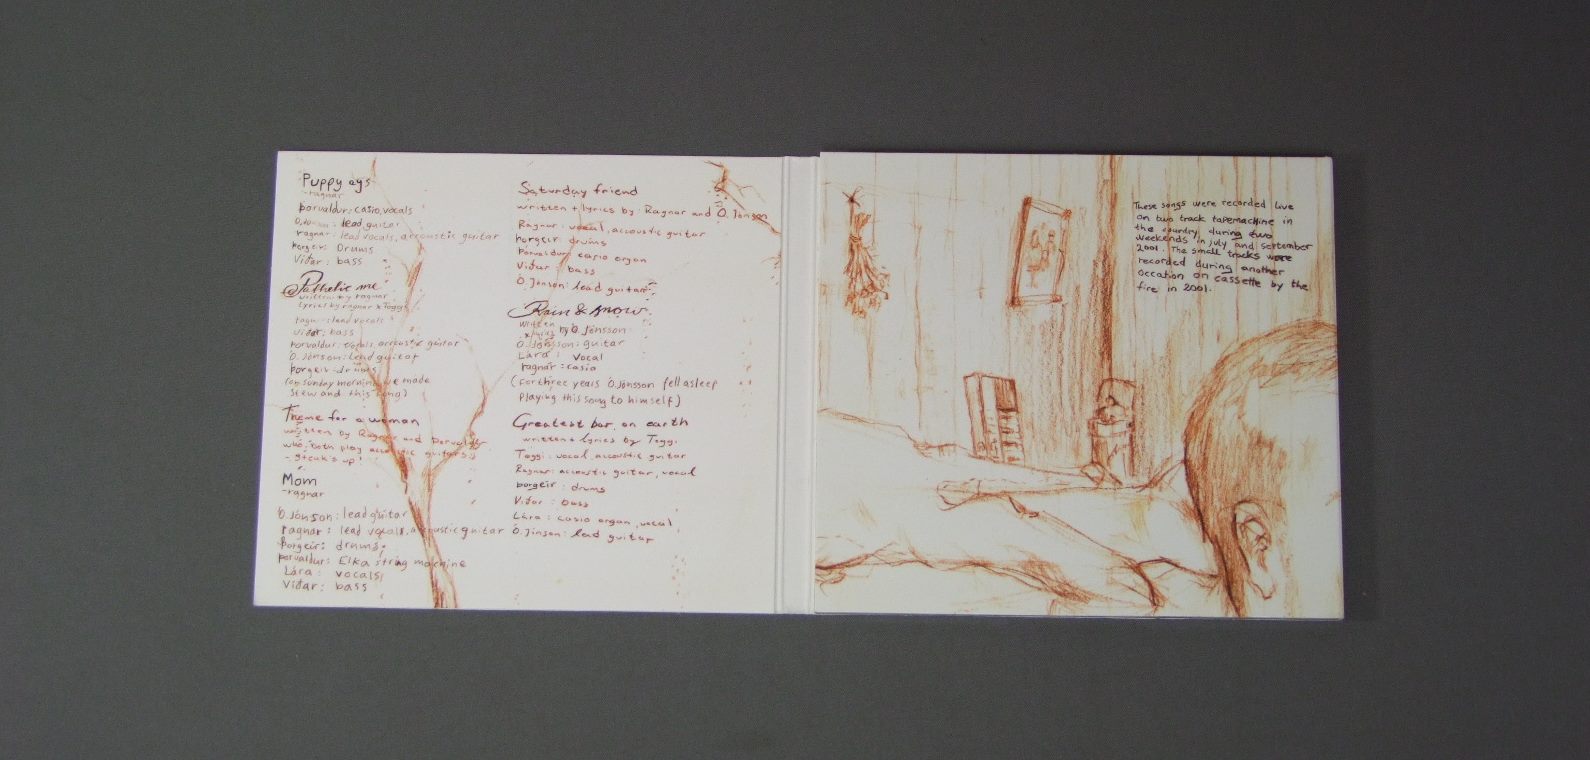 Puppy eys
-ragnar
þorvaldur: casio, vocals
lead guitar
ragnar: lead vocals, accoustic guitar
Þorgeir: Drums
Viðar: bass
Pathetic me
written by ragnar
Lyrics by ragnar & Toggi
lead vocals
viðar: bass
Þorvaldur: vocals, accoustic guitar
Ó. Jónson: lead guitar
Þorgeir: drums
(on sunday morning we made
stew and this song)
Theme for a woman
written by Ragnar and Þorvaldur
who both play accoustic guitars.
Mom
-ragnar
Ó. Jónson: lead guitar
ragnar: lead vocals, accoustic guitar
Þorgeir: drums
Þorvaldur: Elka string machine
Lára: vocals
Viðar: bass
Saturday friend
written + lyrics by: Ragnar and Ó. Jónson
Ragnar: vocal, accoustic guitar
Þorgeir: drums
Þorvaldur: casio organ
Viðar: bass
Ó. Jónson: lead guitar
Rain & snow
written
& lyrics by Ó. Jónsson
Ó. Jónsson: guitar
Lára: vocal
ragnar: casio
(For three years Ó. Jónsson fell asleep
playing this song to himself)
Greatest bar, on earth
written + lyrics by Toggi
Toggi: vocal, accoustic guitar
Ragnar: accoustic guitar, vocal
Þorgeir: drums
Viðar: bass
Lára: casio organ, vocal
Ó. Jónson: lead guitar
These songs were recorded live
on two track tapemachine in
the country during two
weekends in july and september
2001. The small tracks were
recorded during another
occation on cassette by the
fire in 2001.